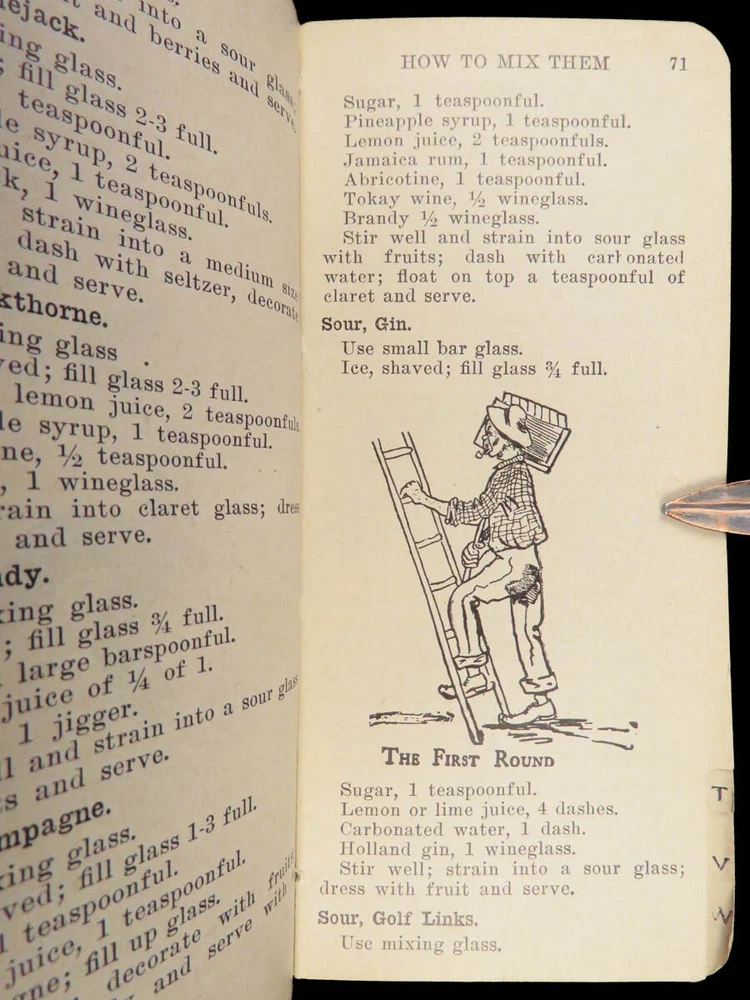 ejack.
into a sour glass;
and berries and serve.
ing glass.
; fill glass 2-3 full.
teaspoonful.
le syrup, 2 teaspoonfuls.
uice, 1 teaspoonful.
k, 1 wineglass.
strain into a medium size
dash with seltzer, decorate
and serve.
kthorne.
ing glass
ved; fill glass 2-3 full.
lemon juice, 2 teaspoonfuls
le syrup, 1 teaspoonful.
ne, ½ teaspoonful.
, 1 wineglass.
rain into claret glass; dress
and serve.
ndy.
xing glass.
; fill glass ¾ full.
large barspoonful.
juice of ¼ of 1.
1 jigger.
ll and strain into a sour glass
ts and serve.
mpagne.
xing glass.
ved; fill glass 1-3 full.
1 teaspoonful.
juice, 1 teaspoonful.
gne; fill up glass.
decorate with fruits
and serve with
HOW TO MIX THEM 71
Sugar, 1 teaspoonful.
Pineapple syrup, 1 teaspoonful.
Lemon juice, 2 teaspoonfuls.
Jamaica rum, 1 teaspoonful.
Abricotine, 1 teaspoonful.
Tokay wine, ½ wineglass.
Brandy ½ wineglass.
Stir well and strain into sour glass
with fruits; dash with carbonated
water; float on top a teaspoonful of
claret and serve.
Sour, Gin.
Use small bar glass.
Ice, shaved; fill glass ¾ full.
THE FIRST ROUND
Sugar, 1 teaspoonful.
Lemon or lime juice, 4 dashes.
Carbonated water, 1 dash.
Holland gin, 1 wineglass.
Stir well; strain into a sour glass;
dress with fruit and serve.
Sour, Golf Links.
Use mixing glass.
T
V
W